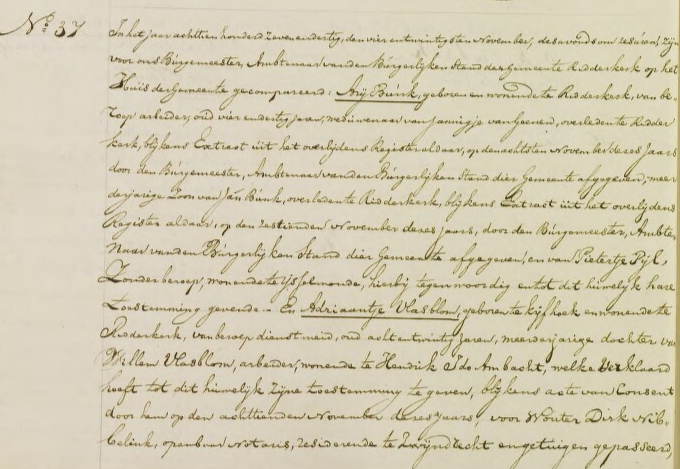 No. 37
In het jaar achttien honderd zeven en dertig, den vier en twintigsten November, des avonds om zes uren, zijn
voor ons Burgemeester, Ambtenaar van den Burgerlijken Stand der Gemeente Ridderkerk op het
Huis der Gemeente gecompareerd: Arij Bunk, geboren en wonende te Ridderkerk, van be-
roep arbeider, oud vier en dertig jaren, weduwenaar van Jannigje van Geenen, overleden te Ridder
kerk, blijkens Extract uit het overlijdens Register aldaar, op den achtsten November dezes Jaars
door den Burgemeester, Ambtenaar van den Burgerlijken Stand dier Gemeente afgegeven, meer
derjarige Zoon van Jan Bunk, overleden te Ridderkerk, blijkens Extract uit het overlijdens
Register aldaar, op den zestienden November dezes jaars, door den Burgemeester, Ambte-
naar van den Burgerlijken Stand dier Gemeente afgegeven, en van Pietertje Pijl,
Zonder beroep, wonende te IJsselmonde, hierbij tegenwoordig en tot dit huwelijk hare
toestemming gevende. – En Adriaantje Vlasblom, geboren te Kijfhoek en wonende te
Ridderkerk, van beroep dienstmeid, oud acht en twintig jaren, meerderjarige dochter van
Willem Vlasblom, arbeider, wonende te Hendrik Ido Ambacht, welke verklaard
heeft tot dit huwelijk zijne toestemming te geven, blijkens acte van Consent
door hem op den achttienden November dezes jaars, voor Wouter Dirk Nib-
belink, openbaar Notaris, residerende te Zwijndrecht en getuigen gepasseerd,